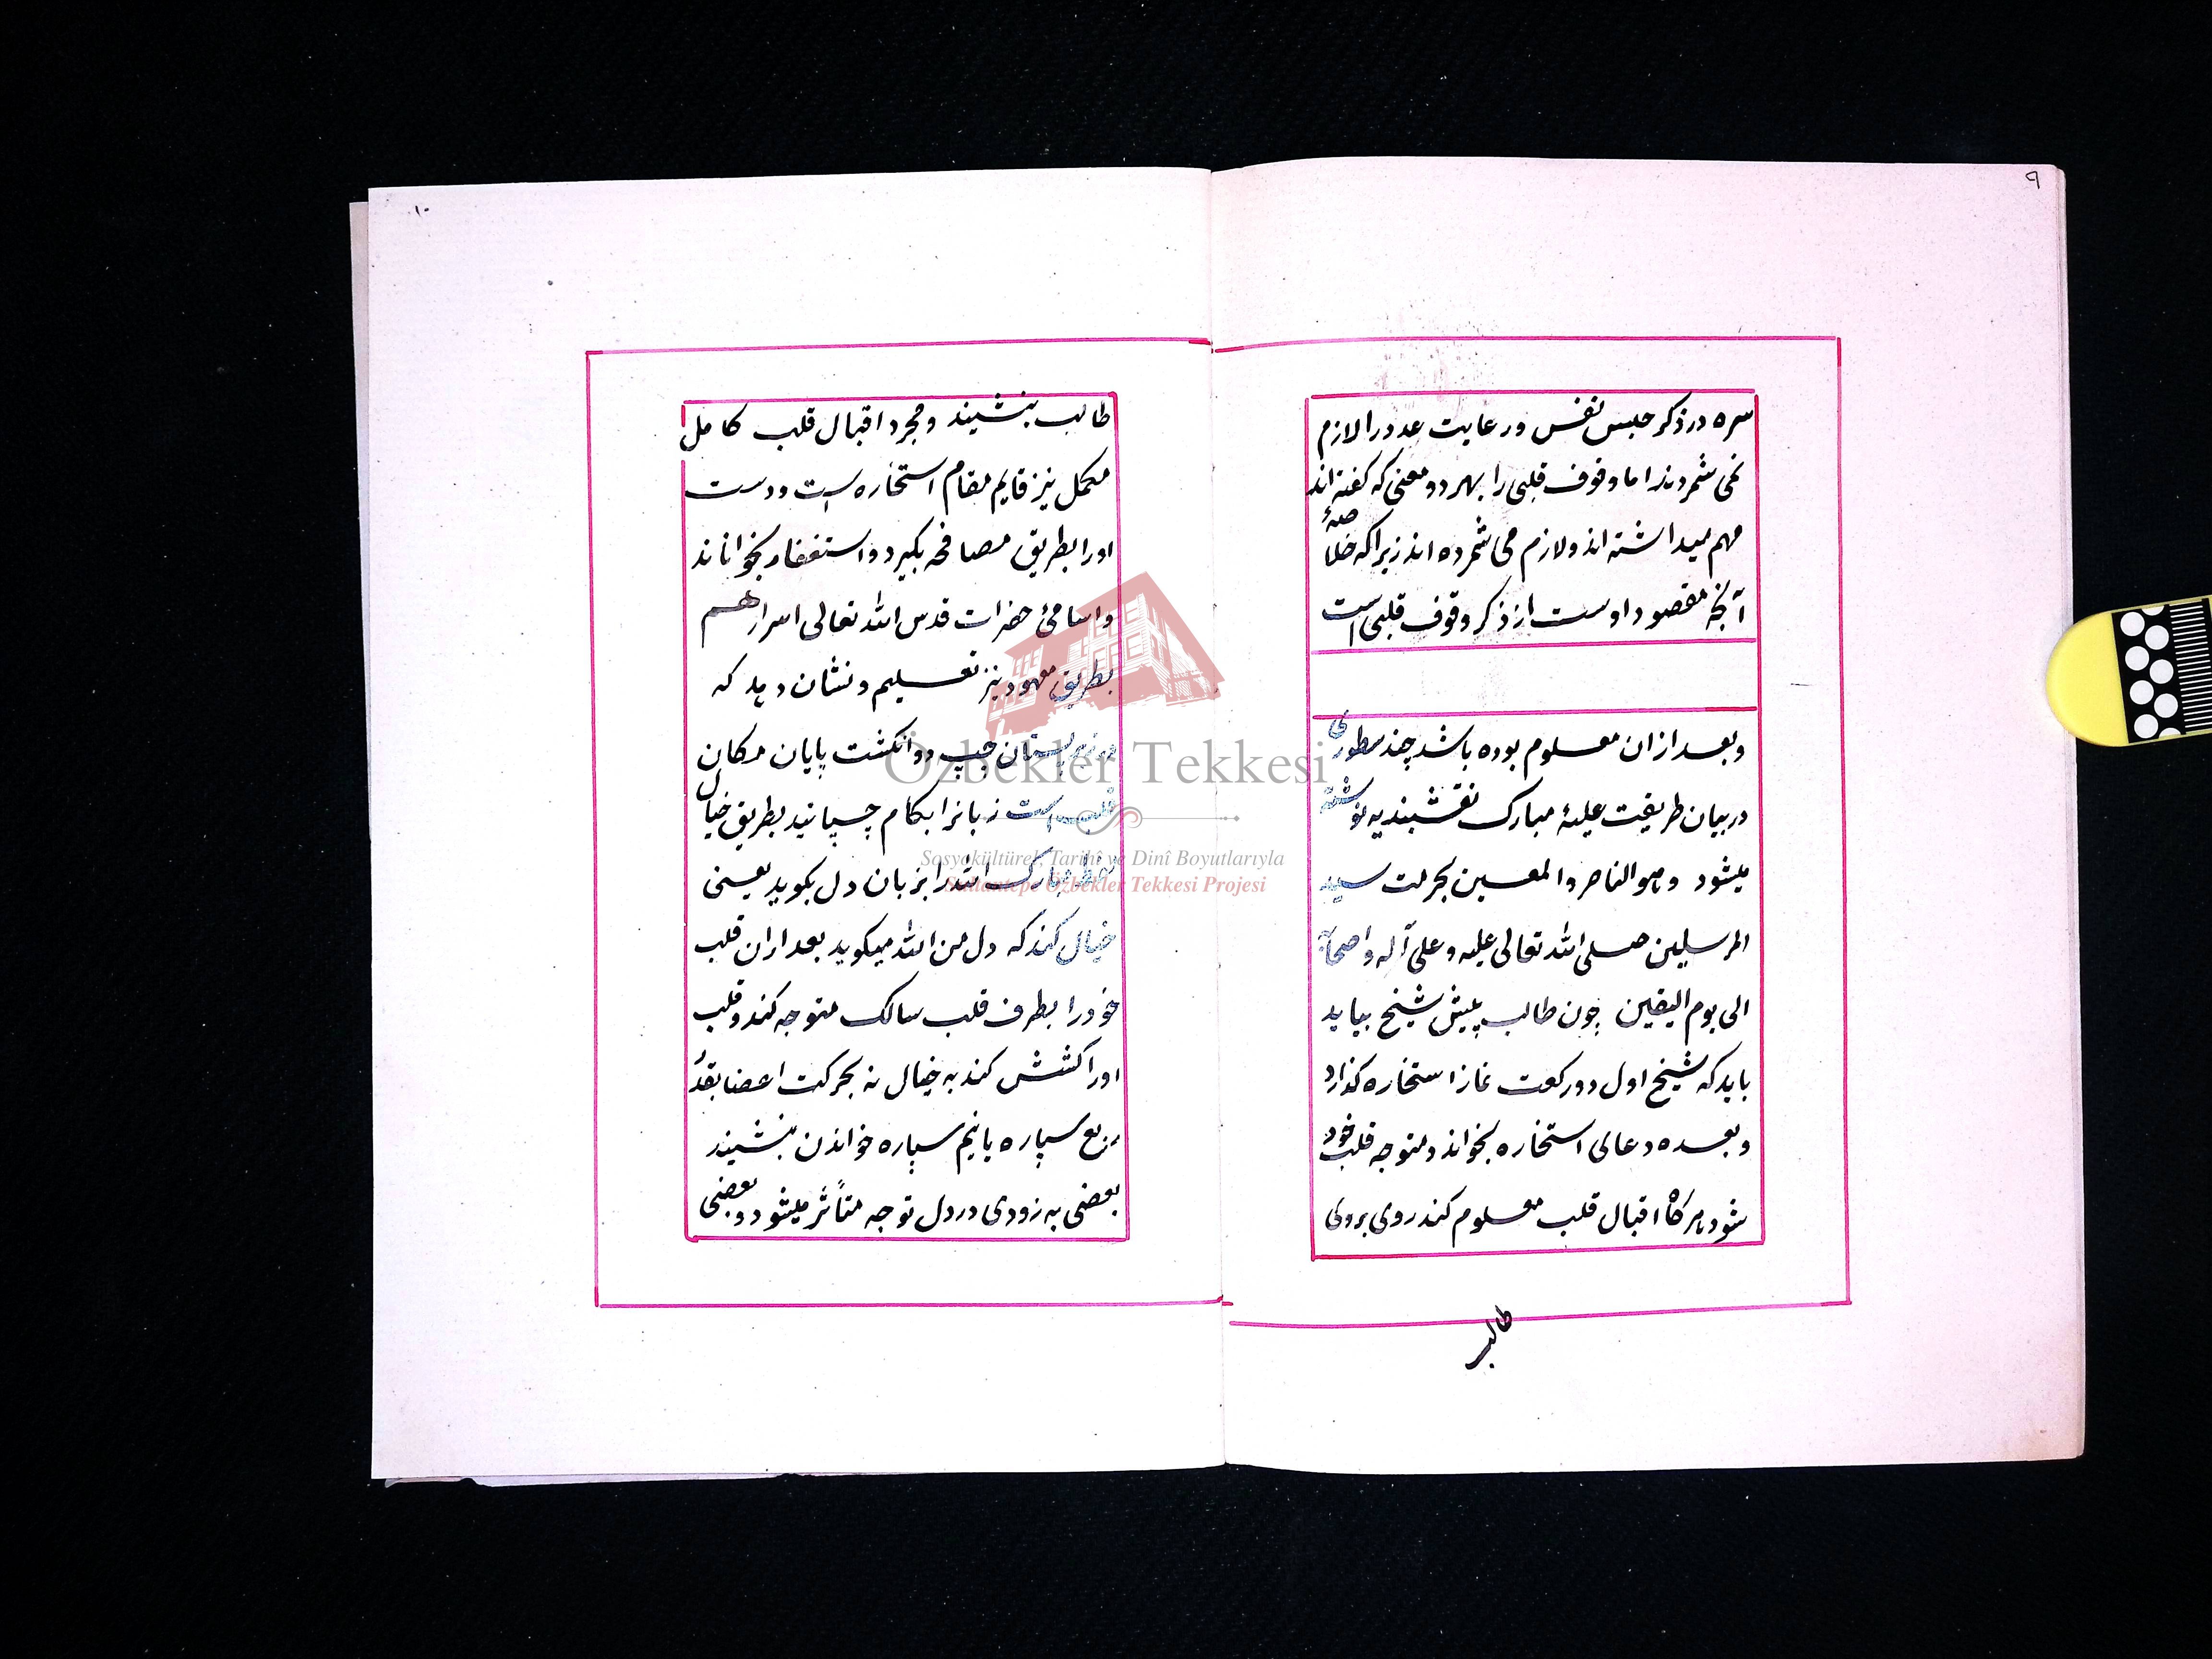 ٩
سره در ذکر حبس نفس و رعایت عدد را لازم
نمی شمردند اما وقوف قلبی را بهر دو معنی که کفته اند
مهم میداشته اند و لازم می شمرده اند زیرا که خلاصهٔ
آنچه مقصود اوست از ذکر وقوف قلبی است
و بعد از ان معلوم بوده باشد چند سطوری
در بیان طریقت علیهٔ مبارک نقشبندیه نوشته
میشود و هو الناصر والمعین بحرمت سید
المرسلین صلی الله تعالی علیه و علی آله و اصحابه
الی یوم الیقین چون طالب پیش شیخ بیاید
باید که شیخ اول دو رکعت نماز استخاره کذارد
و بعده دعای استخاره بخواند و متوجه قلب خود
شود هرکاه اقبال قلب معلوم کند روی بروی
طالب
١٠
طالب بنشیند و مجرد اقبال قلب کامل
مکمل نیز قایم مقام استخاره است و دست
اورا بطریق مصافحه بکیرد و استغفار بخواناند
و اسامیٔ حضرات قدس الله تعالی اسرارهم
بطریق معهود نیز تعلیم و نشان دهد که
زیر پستان چپ دو انکشت پایان مکان
قلب است زبانرا بکام چسپانید بطریق خیال
لفظ مبارک الله را بزبان دل بکوید یعنی
خیال کند که دل من الله میکوید بعد ازان قلب
خودرا بطرف قلب سالک متوجه کند و قلب
اورا کشش کند به خیال نه بحرکت اعضا بقدر
ربع سپاره یا نیم سپاره خواندن بنشیند
بعضی به زودی در دل توجه متأثر میشود و بعضی
Özbekler Tekkesi
Sosyokültürel, Tarihî ve Dinî Boyutlarıyla
Sultantepe Özbekler Tekkesi Projesi